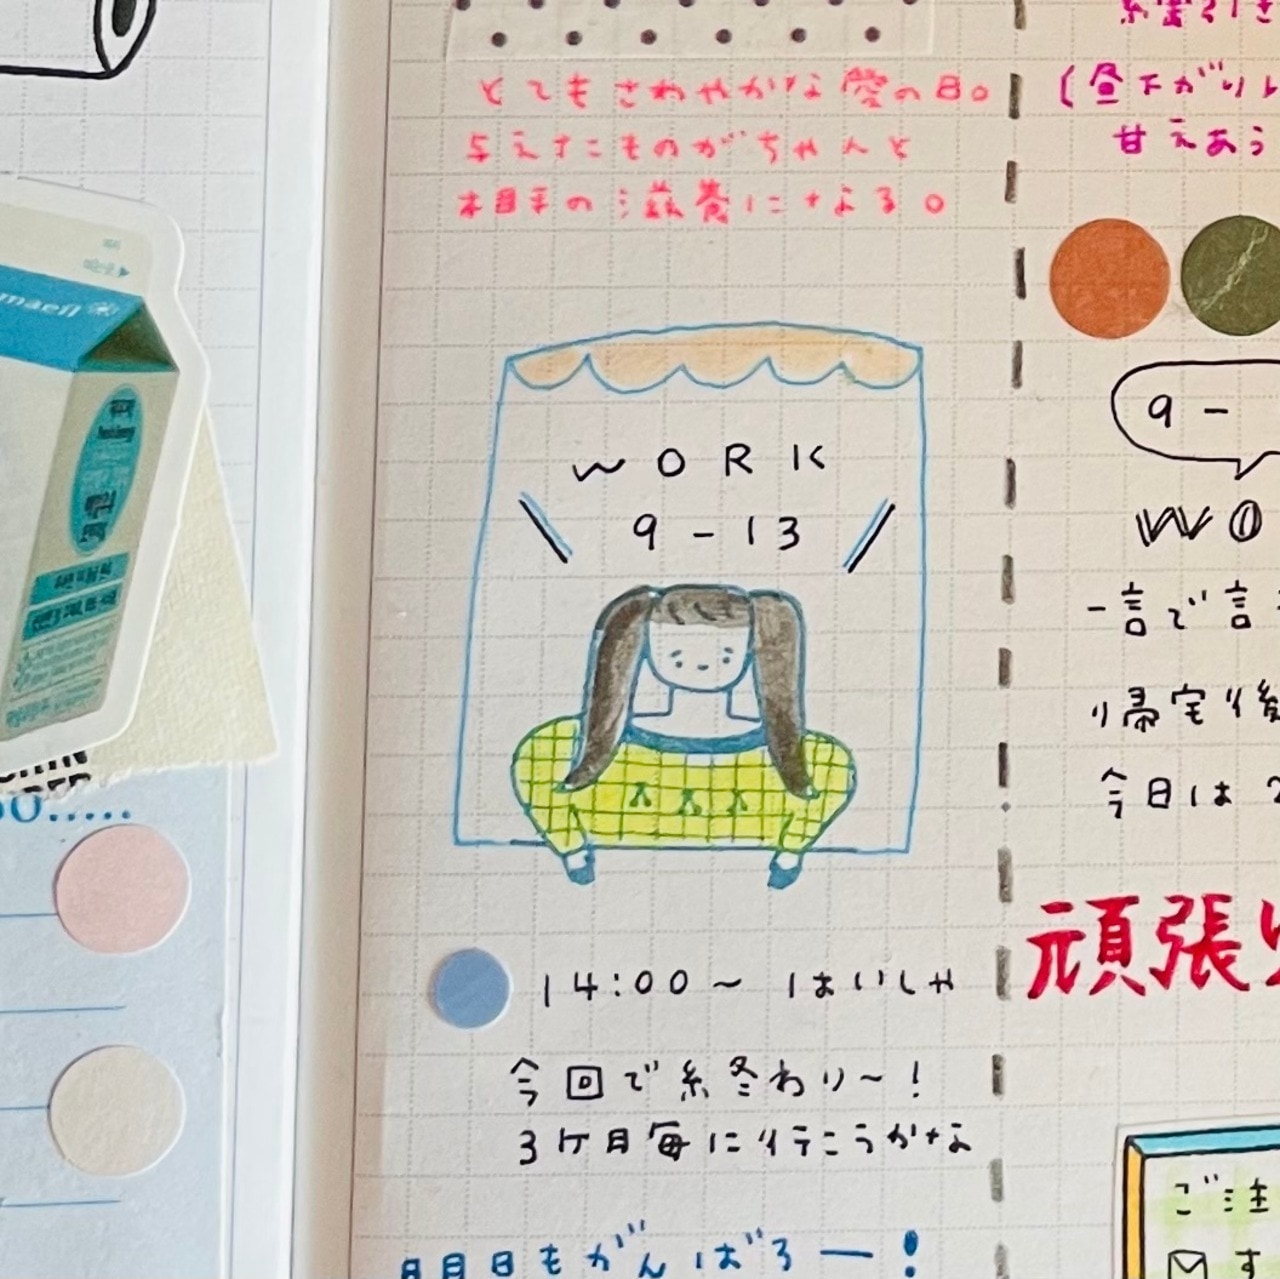 とてもさわやかな愛の日。
与えたものがちゃんと
相手の滋養になる。
WORK
9-13
14:00〜 はいしゃ
今回で終わり〜！
3ヶ月毎に行こうかな
明日もがんばろー！
(昼下がり
甘えあう
9-
WO
一言で言
り帰宅後
今日は
頑張
ご注
す
maeil